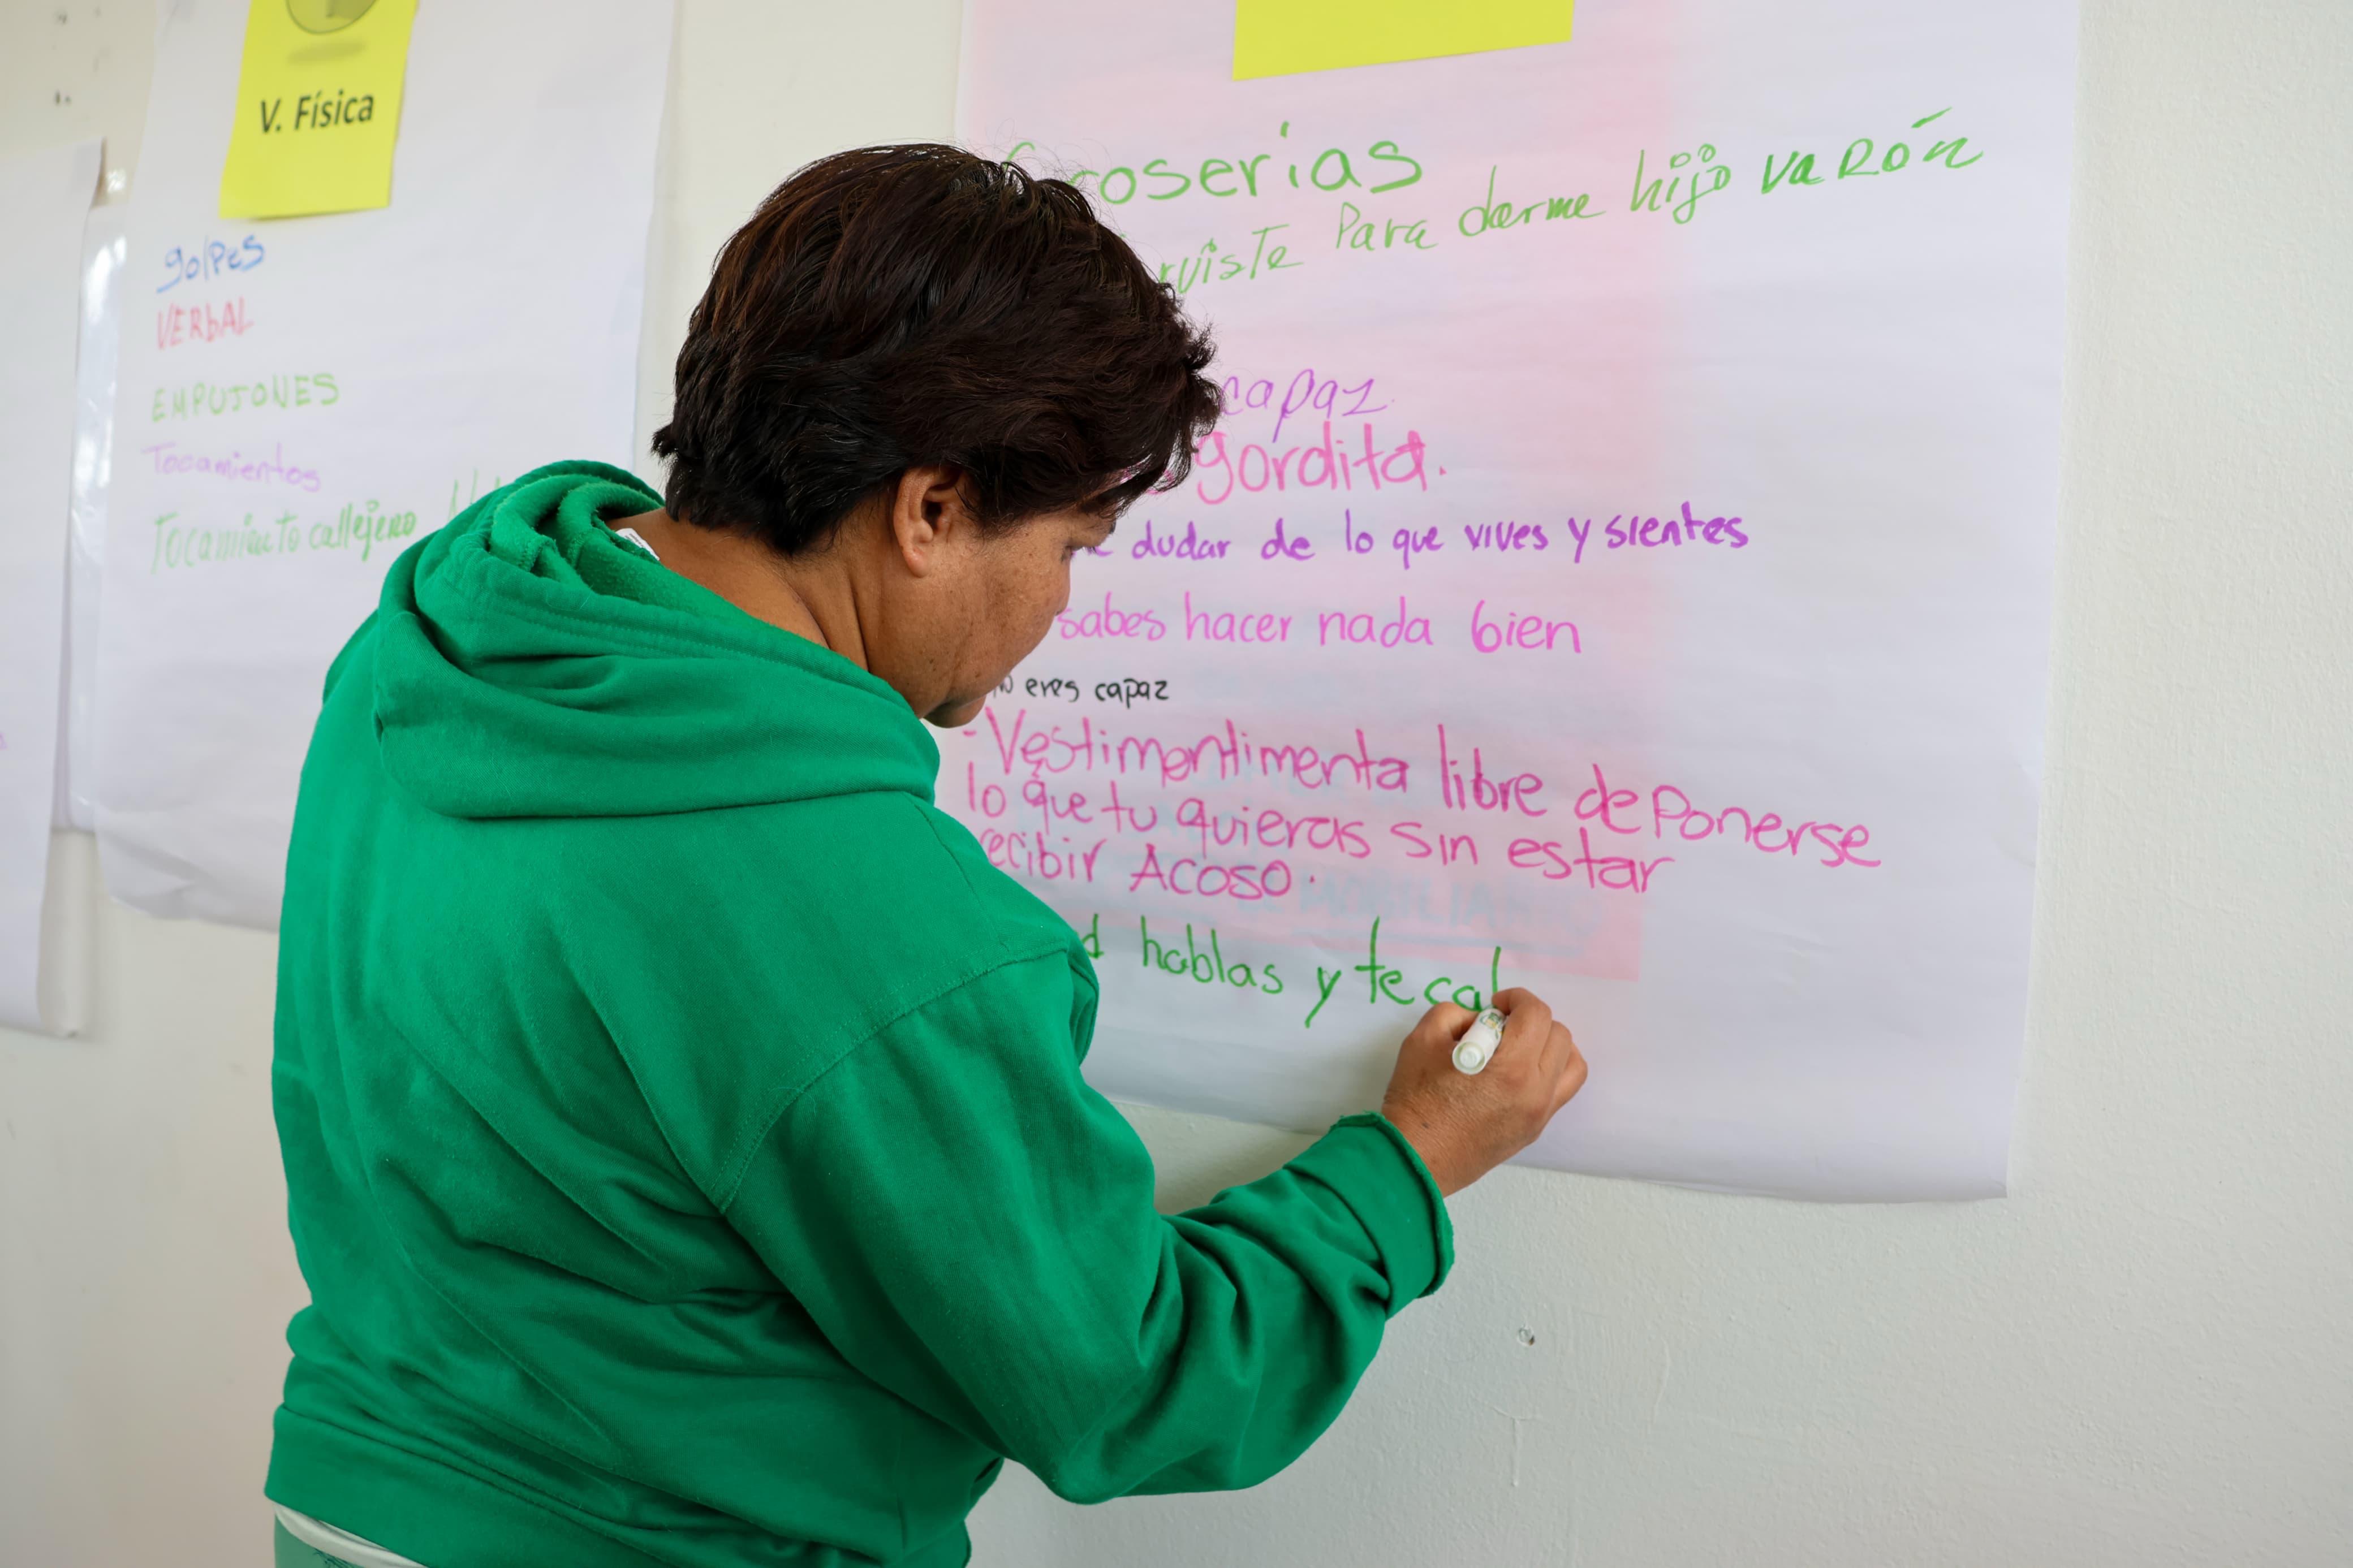 V. Física
golpes
VERbAL
EMPUJONES
Tocamientos
Tocamiento callejero
Para darme hijo varón
capaz.
gordita.
dudar de lo que vives y sientes
sabes hacer nada bien
eres capaz
- Vestimentimenta libre de Ponerse
lo que tu quieras sin estar
recibir Acoso.
hablas y te cal